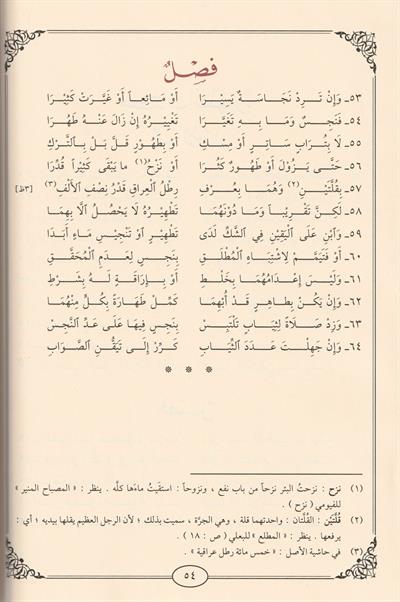 فصل
٥٣ـ وَإِنْ تَرِدْ نَجَاسَةٌ يَسِيرَا أَوْ مَائِعاً أَوْ غَيَّرَتْ كَثِيرَا
٥٤ـ فَنَجِسٌ وَمَا بِهِ تَغَيَّرَا تَغْيِيرُهُ إِنْ زَالَ عَنْهُ طَهُرَا
٥٥ـ لَا بِتُرَابٍ سَاتِرٍ أَوْ مِسْكِ أَوْ بِطَهُورٍ قَلَّ بَلْ بِالتَّرْكِ
٥٦ـ حَتَّى يَزُولَ أَوْ طَهُورٍ كَثُرَا أَوْ نَزْحُ(١) ما يَبْقَى كَثِيراً قُدِّرَا
٥٧ـ بِقُلَّتَيْنِ(٢) وَهُمَا بِعُرْفِ رِطْلُ العِرَاقِ قَدْرُ نِصْفِ الأَلْفِ(٣) [٣ظ]
٥٨ـ لَكِنَّ تَقْرِيباً وَمَا دُونَهُمَا تَطْهِيرُهُ لَا يَحْصُلُ الَّا بِهِمَا
٥٩ـ وَابْنِ عَلَى الْيَقِينِ فِي الشَّكِّ لَدَى تَطْهِيرٍ أَوْ تَنْجِيسِ مَاءٍ أَبَدَا
٦٠ـ أَوْ فَتَيَمَّمْ لِاشْتِبَاهِ المُطْلَقِ بِنَجِسٍ لِعَدَمِ المُحَقَّقِ
٦١ـ وَلَيْسَ إِعْدَامُهُمَا بِخَلْطِ أَوْ بِإِرَاقَةٍ لَهُ بِشَرْطِ
٦٢ـ وَإِنْ يَكُنْ بِطَاهِرٍ قَدْ أُبْهِمَا كَمِّلْ طَهَارَةً بِكُلٍّ مِنْهُمَا
٦٣ـ وَزِدْ صَلَاةً لِثِيَابٍ تَلْتَبِسْ بِنَجِسٍ فِيهَا عَلَى عَدِّ النَّجِسْ
٦٤ـ وَإِنْ جَهِلْتَ عَدَدَ الثِّيَابِ كَرِّرْ إِلَى تَيَقُّنِ الصَّوَابِ
* * *
(١) نزح : نزحتُ البئر نزحاً من باب نفع ، ونزوحاً : استقيتُ ماءَها كلَّه . ينظر : « المصباح المنير »
للفيومي ( نزح ) .
(٢) قُلَّتَيْن : القُلَّتان : واحدتهما قلة ، وهي الجرَّة ، سميت بذلك ؛ لأن الرجل العظيم يقلها بيديه ؛ أي :
يرفعها . ينظر : « المطلع » للبعلي ( ص : ١٨ ) .
(٣) في حاشية الأصل : « خمس مائة رطل عراقية » .
٥٤